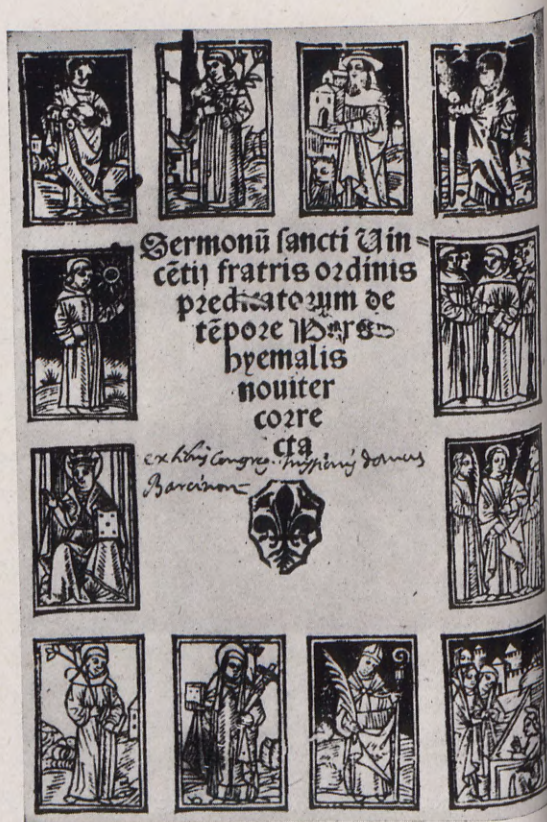 Sermonū sancti Uin=
cētij fratris ordinis
predicatorum de
tēpore Pars
hyemalis
noviter
corre
cta
ex libris Congreg. Missionis domus
Barcinon